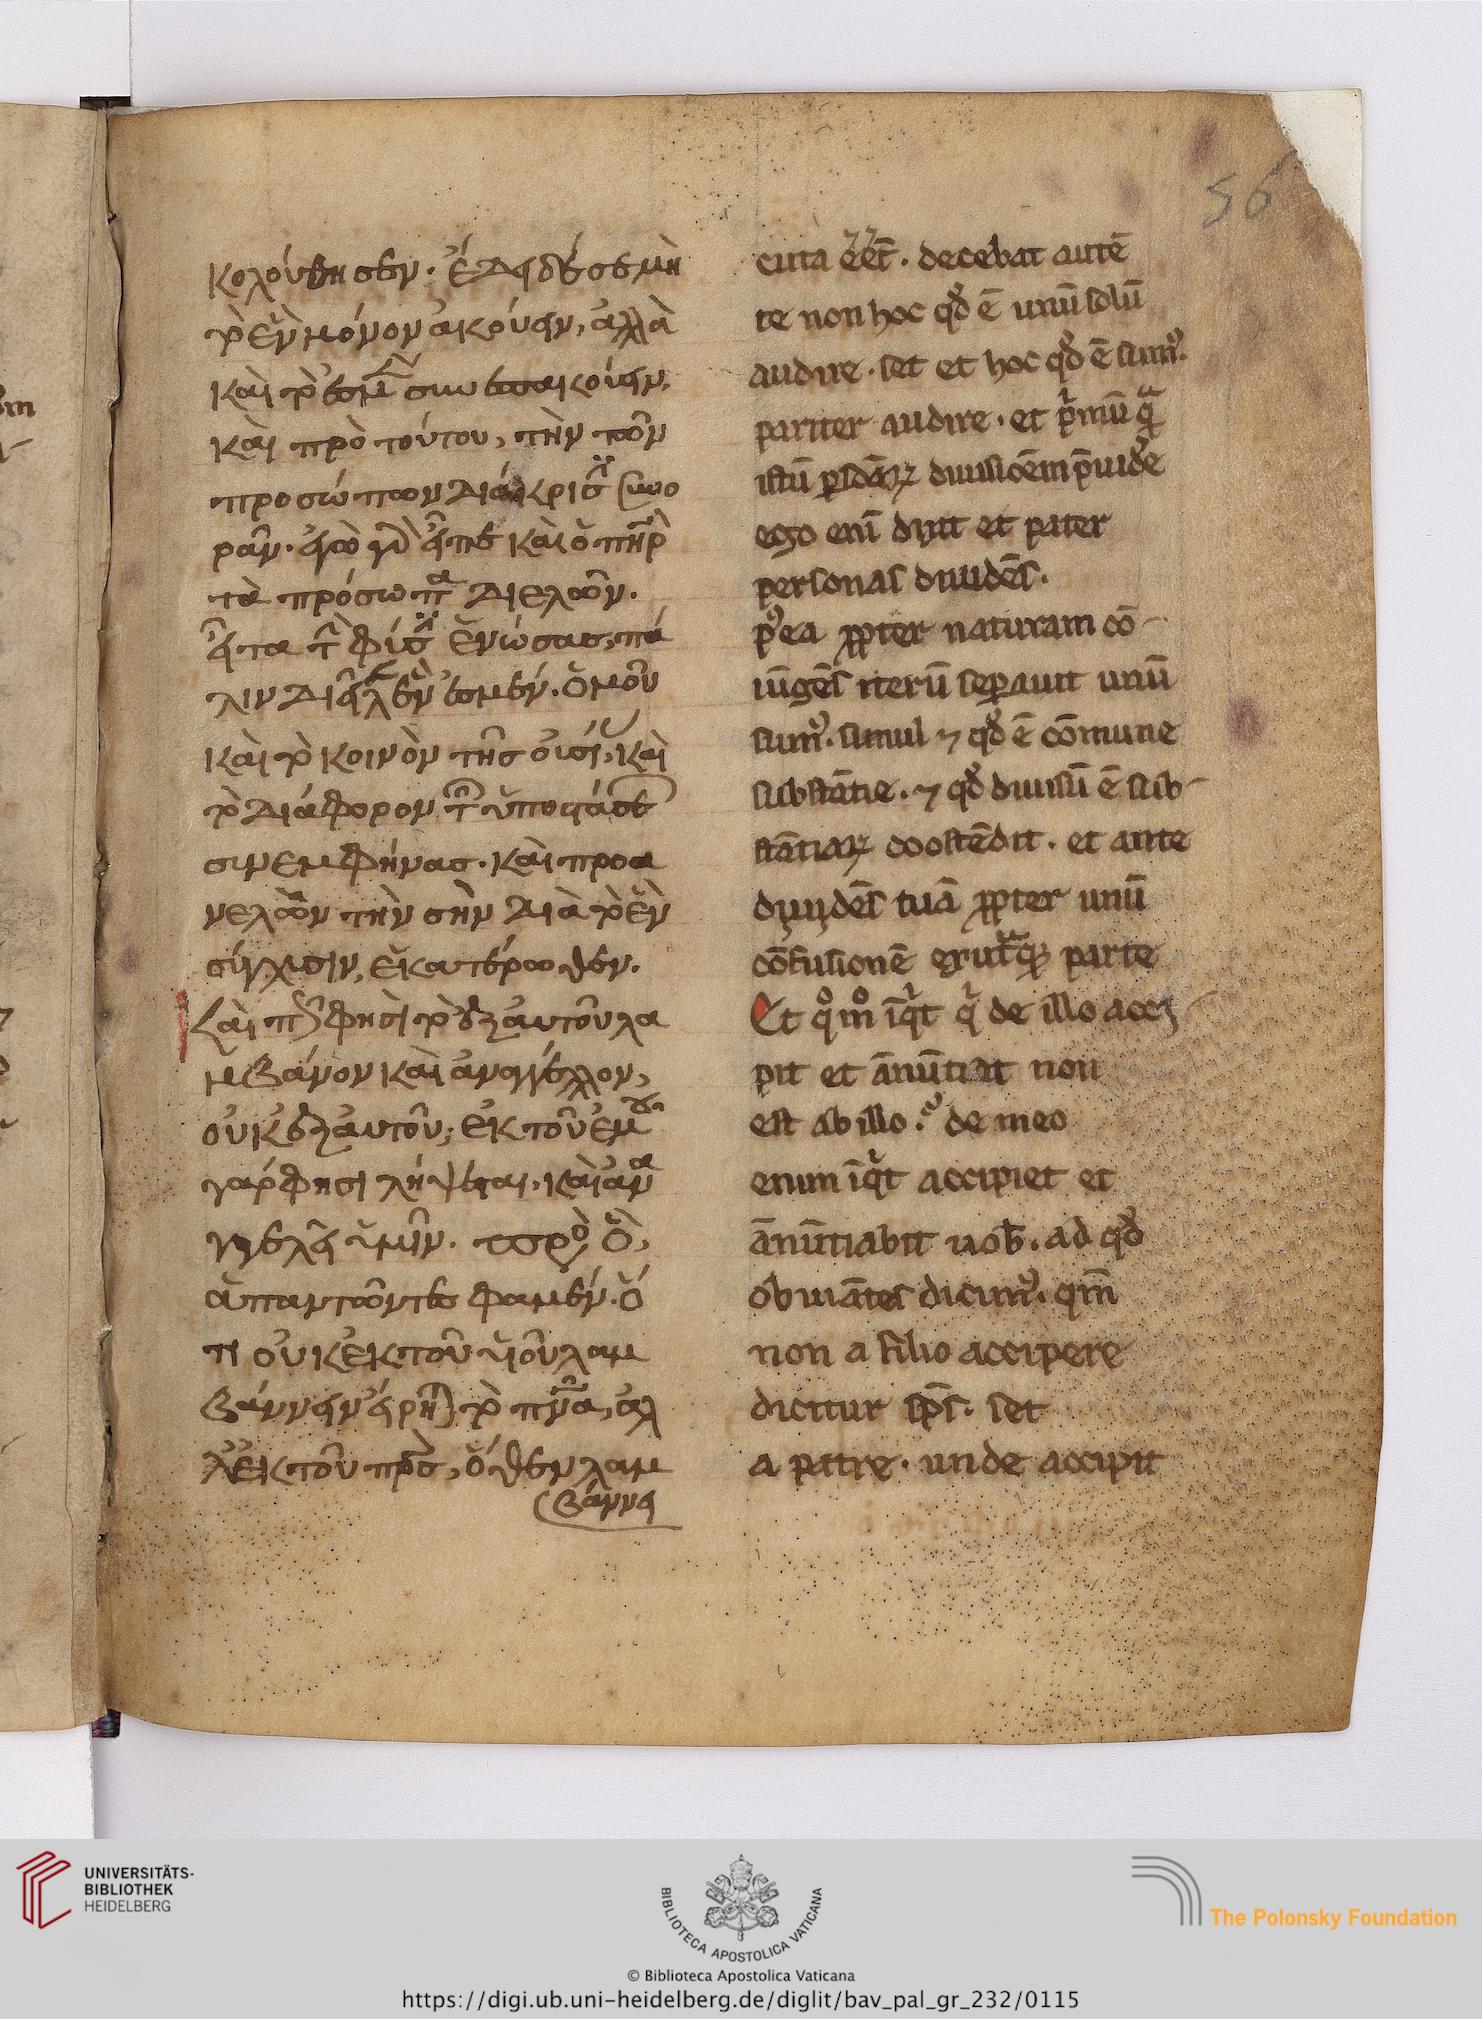 56
κολούθησεν. ἔδει δέ σε μὴ
τὸ ἓν μόνον ἀκούειν, ἀλλὰ
καὶ τὸ ἐσμὲν συνεισακούειν,
καὶ πρὸ τούτου, τὴν τῶν
προσώπων διάκρισιν συνο
ρᾶν. ἐγὼ γὰρ εἶπε καὶ ὁ πηρ
τὰ πρόσωπα διελών.
εἶτα τῇ φύσει ἑνώσας, πά
λιν διεῖλεν ἓν ἐσμέν. ὁμοῦ
καὶ τὸ κοινὸν τῆς οὐσίας, καὶ
τὸ διάφορον τῶν ὑποστάσε
ων ἐμφήνας. καὶ προα
νελὼν τὴν σὴν διὰ τὸ ἓν
σύγχυσιν, ἑκατέρωθεν.
Καὶ πῶς φησὶ τὸ ἐξ αὐτοῦ λα
μβάνον καὶ ἀναγγέλλον,
οὐκ ἐξ αὐτοῦ; ἐκ τοῦ ἐμοῦ
γάρ φησι λήψεται, καὶ ἀνα
γγελεῖ ὑμῖν. πρὸς ὃ,
ἀπαντῶντες φαμέν. ὅ
τι οὐκ ἐκ τοῦ υἱοῦ λαμ
βάνειν εἴρηται τὸ πνα, ἀλ
λ' ἐκ τοῦ προς, ὅθεν λαμ
βάνει
cuta eēt. decebat autē
te non hoc qd̓ ē unū solū
audire. set et hoc qd̓ ē sum᾿.
pariter audire. et p̄mū qᵃ
istū p̱sōaꝝ diuisiōem p̄uide
ego eni dixit et pater
personas diuidēs.
p᾿ea ꝓpter naturam cō-
iūgēs iterū sep̱auit unū
sum᾿. simul ⁊ qd̓ ē cōmune
substātie. ⁊ qd̓ diuisū ē sub-
stātiaꝝ coostēdit. et ante
diuidēs tuā ꝓpter unū
cōfusionē ex utᵃq; parte
Et qᵒmᵒ īqⁱt qⁱ de illo acci-
pit et ānūtiat non
est ab illo. de meo
enim īqⁱt accipiet et
ānūtiabit uob̄. ad qd̓
obuiātes dicim᾿. qm̄
non a filio accipere
dicitur sp̄s. set
a patre. unde accipit
UNIVERSITÄTS-
BIBLIOTHEK
HEIDELBERG
BIBLIOTECA APOSTOLICA VATICANA
The Polonsky Foundation
© Biblioteca Apostolica Vaticana
https://digi.ub.uni-heidelberg.de/diglit/bav_pal_gr_232/0115